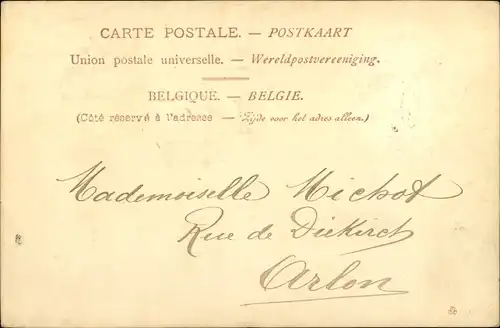 CARTE POSTALE. — POSTKAART
Union postale universelle. — Wereldpostvereeniging.
BELGIQUE. — BELGIE.
(Côté réservé à l'adresse — Zijde voor het adres alleen.)
Mademoiselle Michot
Rue de Diekirch
Arlon